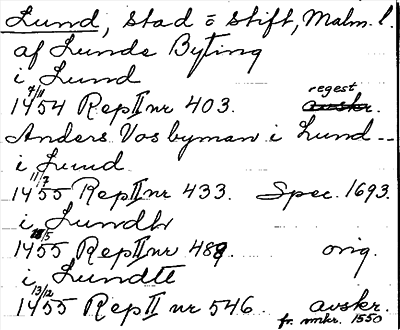 Lund, stad o stift, Malm. l.
af Lunde Byting
i Lund
9/11 regest
1454 Rep II nr 403. avskr.
Anders Vos byman i Lund --
i Lund
11/2
1455 Rep II nr 433. Spec. 1693.
i Lundh
1455 Rep II nr 489. orig.
i Lundte
13/12
1455 Rep II nr 546. avskr.
fr. mkr. 1550